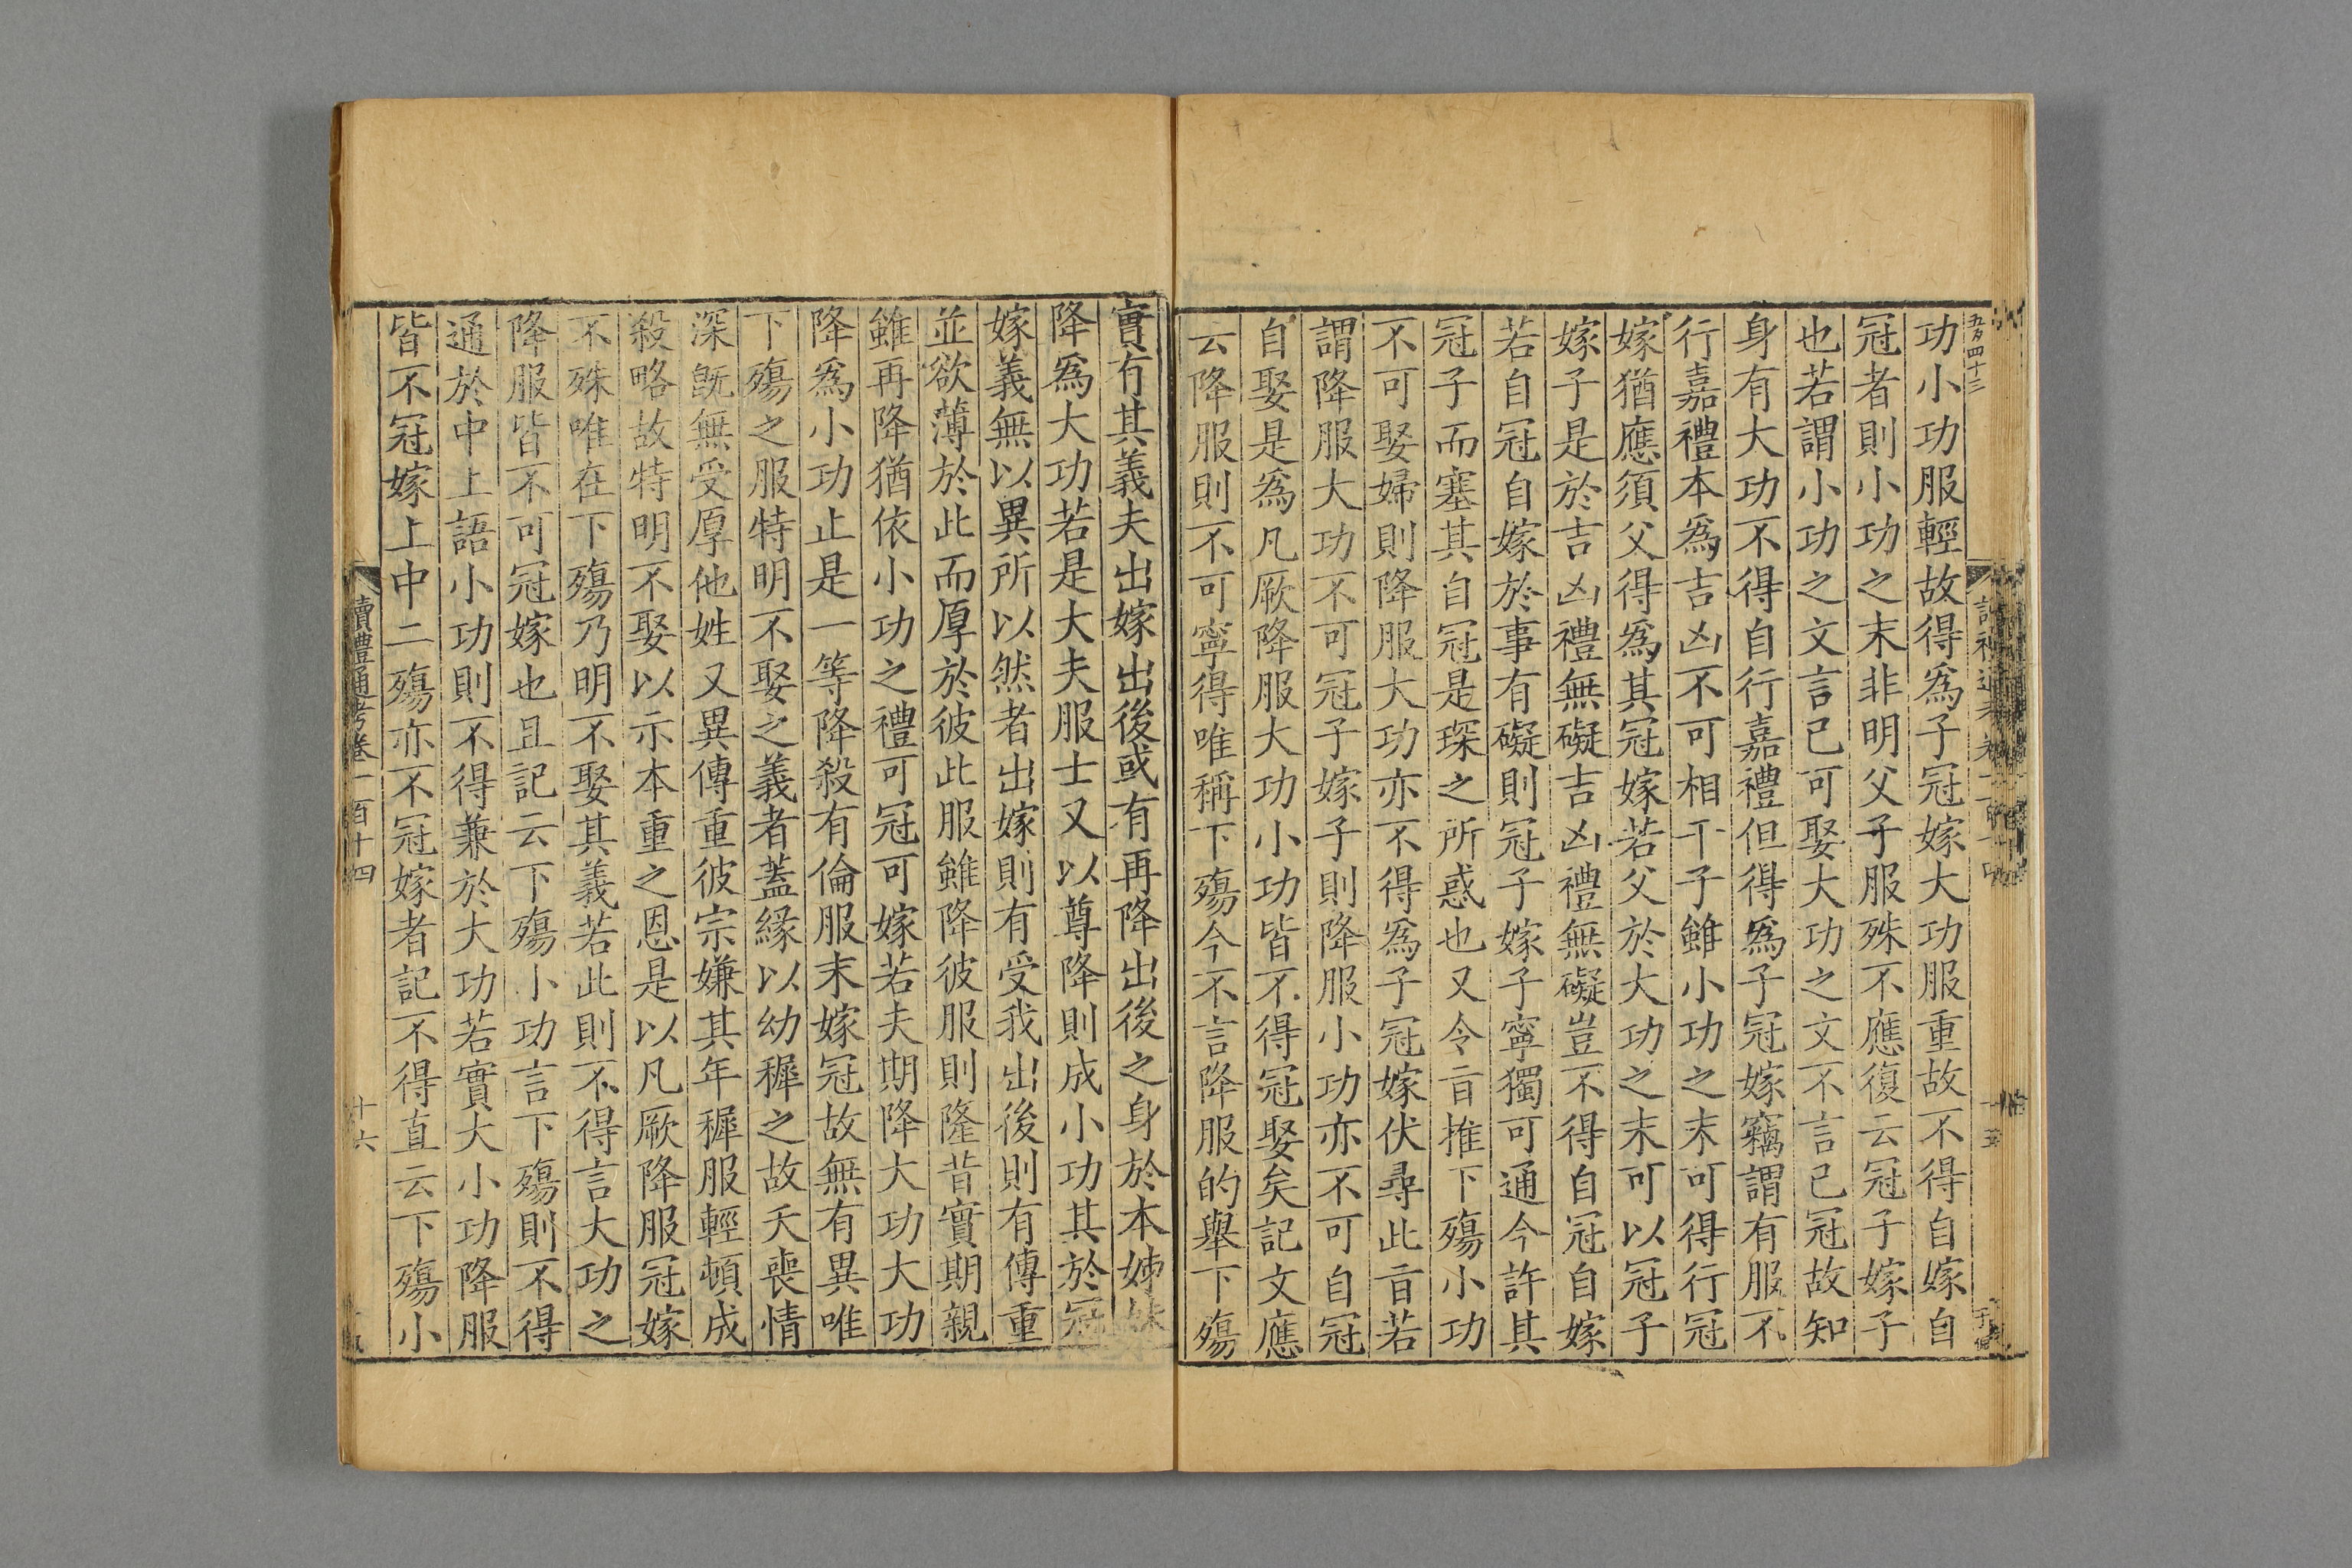 五百四十三
功小功服輕故得爲子冠嫁大功服重故不得自嫁自
冠者則小功之末非明父子服殊不應復云冠子嫁子
也若謂小功之文言已可娶大功之文不言已冠故知
身有大功不得自行嘉禮但得爲子冠嫁竊謂有服不
行嘉禮本爲吉凶不可相干子雖小功之末可得行冠
嫁猶應須父得爲其冠嫁若父於大功之末可以冠子
嫁子是於吉凶禮無礙吉凶禮無礙豈不得自冠自嫁
若自冠自嫁於事有礙則冠子嫁子寧獨可通今許其
冠子而塞其自冠是琛之所惑也又令旨推下殤小功
不可娶婦則降服大功亦不得爲子冠嫁伏尋此旨若
謂降服大功不可冠子嫁子則降服小功亦不可自冠
自娶是爲凡厥降服大功小功皆不得冠娶矣記文應
云降服則不可寧得唯稱下殤今不言降服的舉下殤
實有其義夫出嫁出後或有再降出後之身於本姊妹
降爲大功若是大夫服士又以尊降則成小功其於冠
嫁義無以異所以然者出嫁則有受我出後則有傳重
並欲薄於此而厚於彼此服雖降彼服則隆昔實期親
雖再降猶依小功之禮可冠可嫁若夫期降大功大功
降爲小功止是一等降殺有倫服末嫁冠故無有異唯
下殤之服特明不娶之義者蓋緣以幼穉之故夭喪情
深既無受厚他姓又異傳重彼宗嫌其年穉服輕頓成
殺略故特明不娶以示本重之恩是以凡厥降服冠嫁
不殊唯在下殤乃明不娶其義若此則不得言大功之
降服皆不可冠嫁也且記云下殤小功言下殤則不得
通於中上語小功則不得兼於大功若實大小功降服
皆不冠嫁上中二殤亦不冠嫁者記不得直云下殤小
讀禮通考卷一百十四
十六